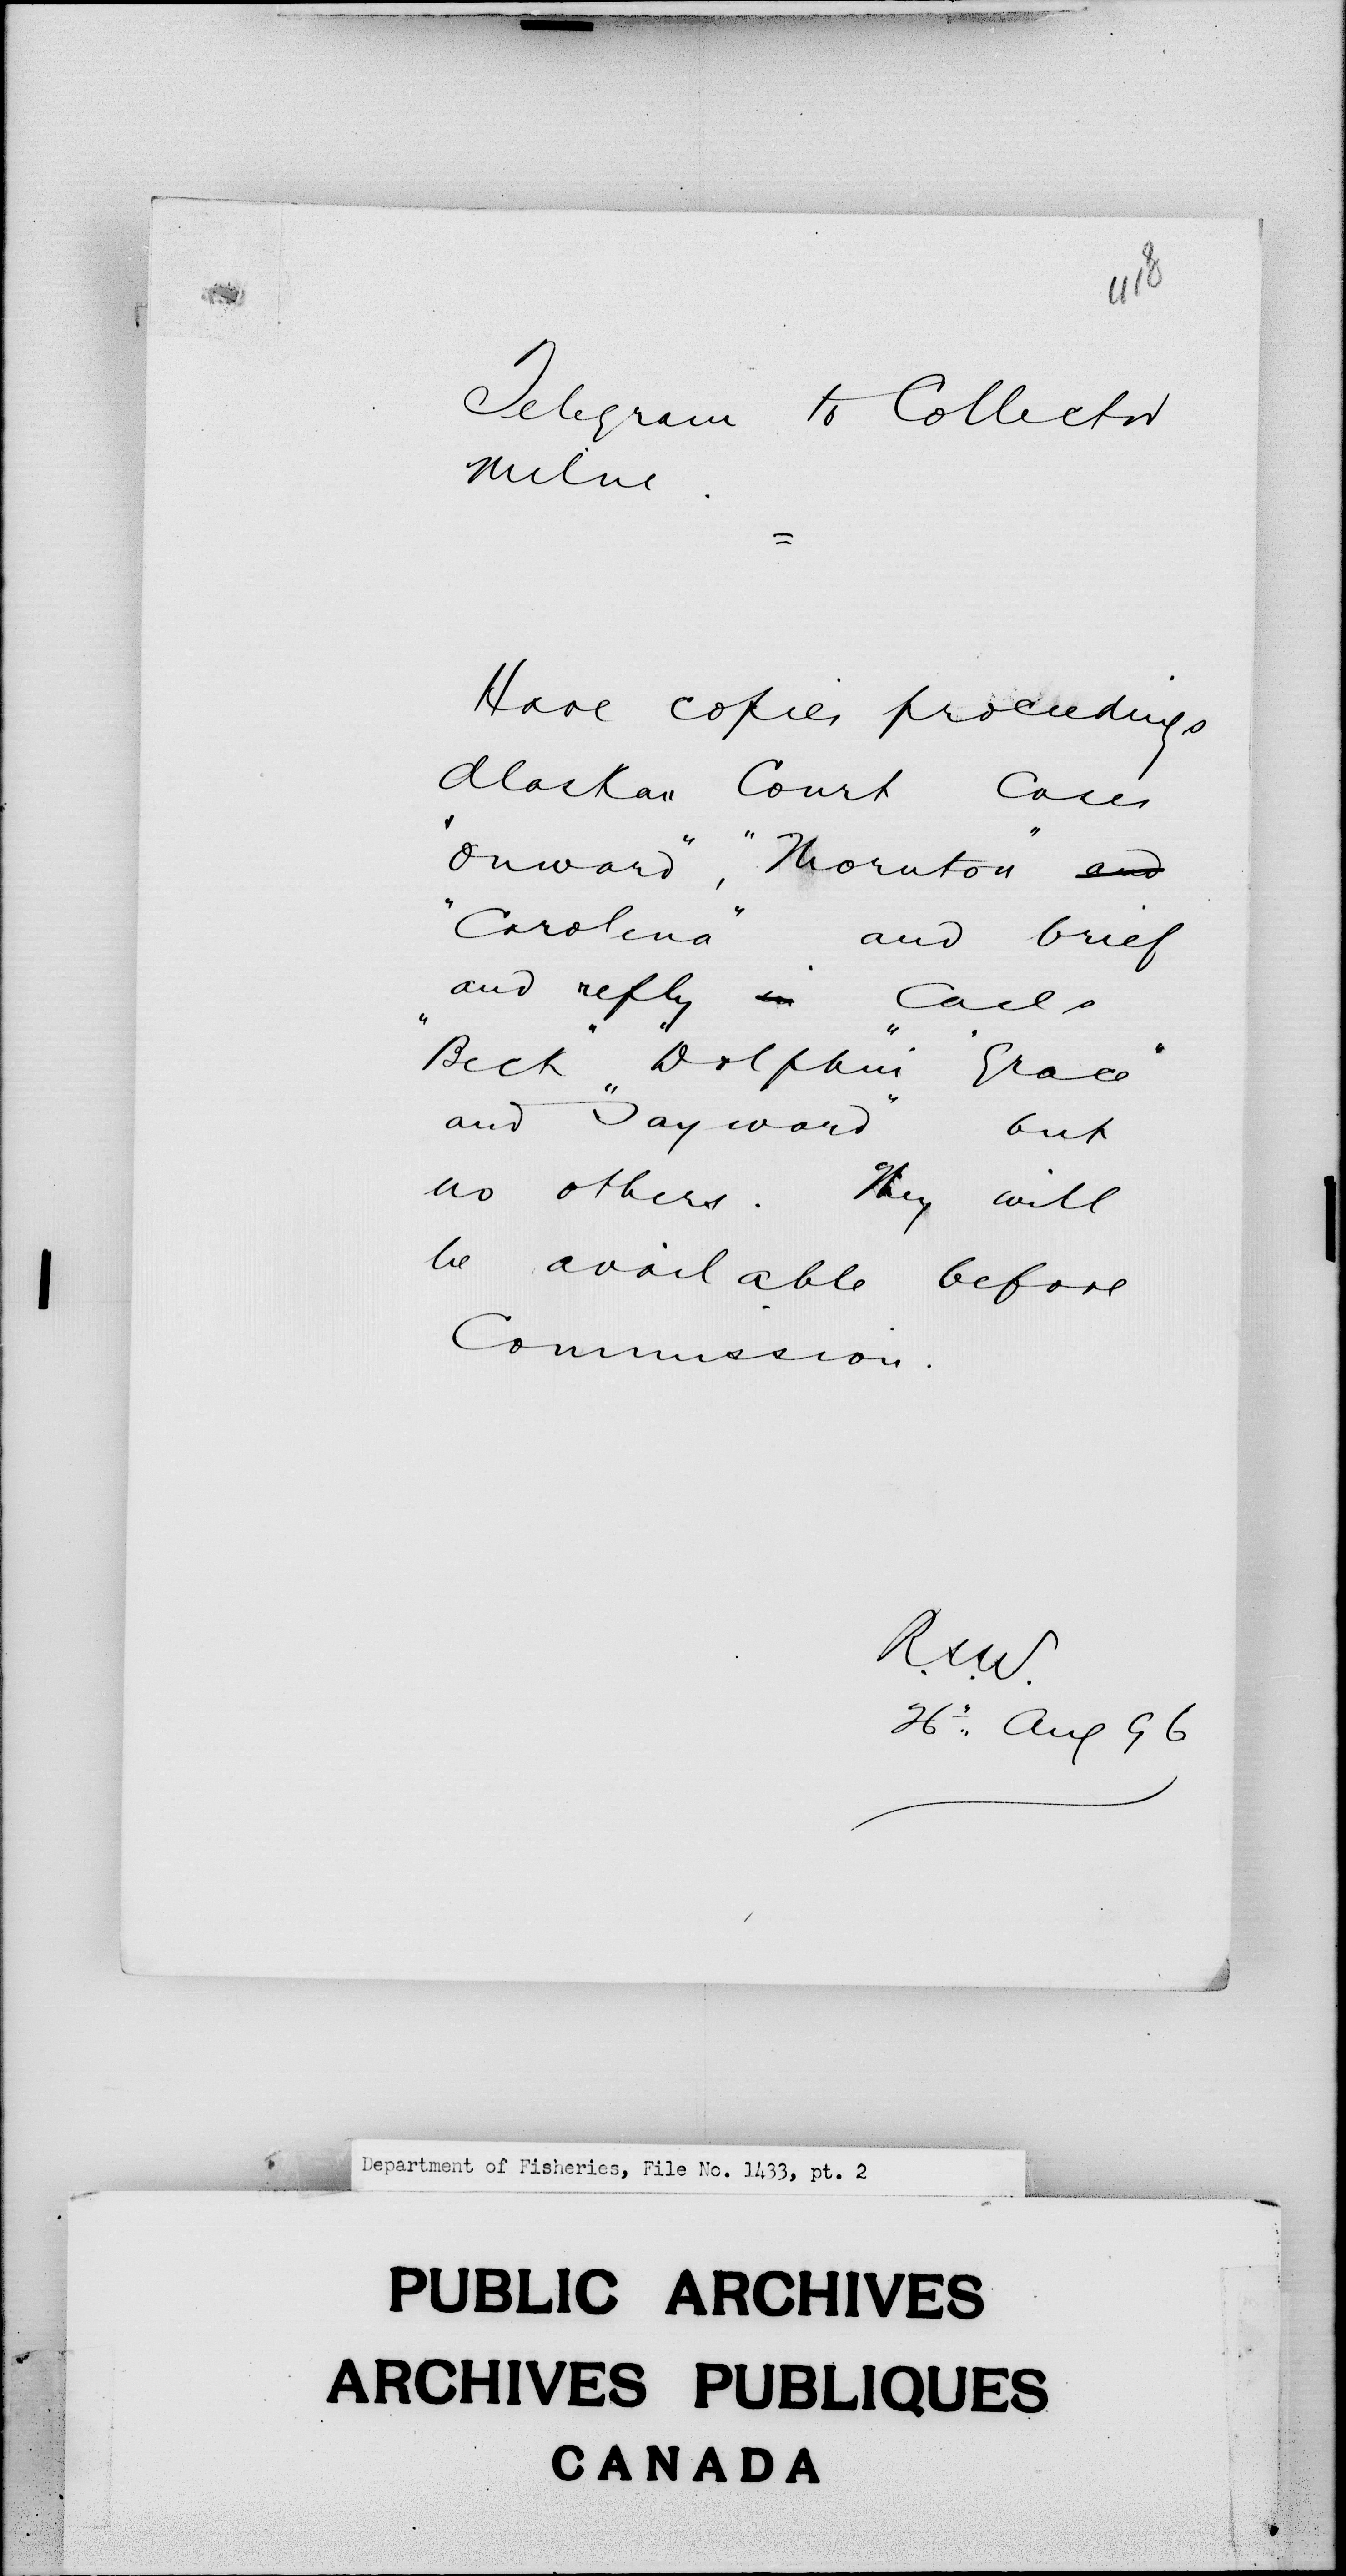 418
Telegram to Collector
Milne.
=
Have copies proceedings
Alaskan Court Cases
"Onward", "Thornton" and
"Carolena" and brief
and reply in Cases
"Beck" "Dolphin" "Grace"
and "Sayward" but
no others. They will
be available before
Commission.
R.N.V.
26th. Aug 96
Department of Fisheries, File No. 1433, pt. 2
PUBLIC ARCHIVES
ARCHIVES PUBLIQUES
CANADA